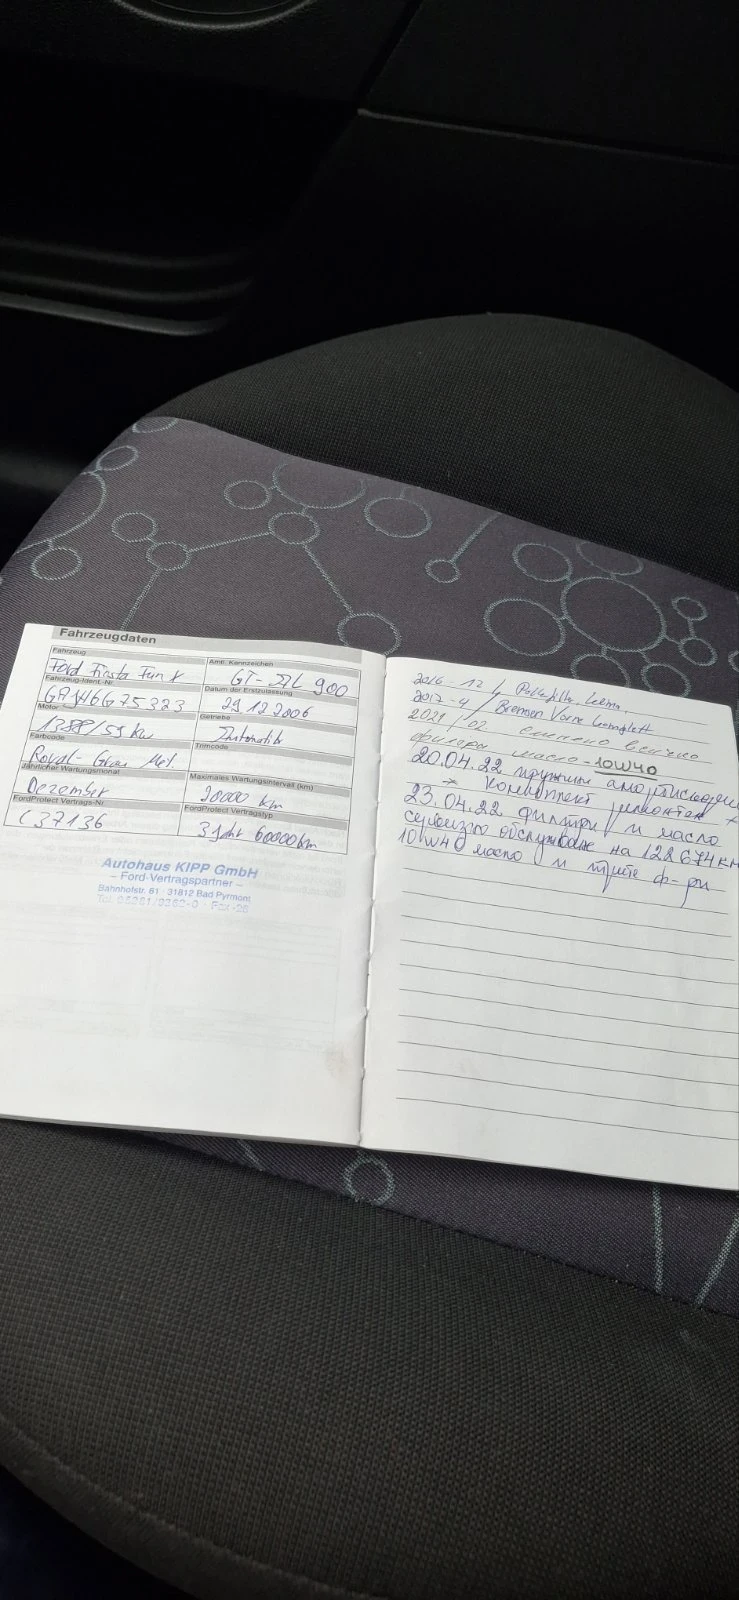 Fahrzeugdaten
Fahrzeug
Ford Fiesta Fun X
Amtl. Kennzeichen
GT- 900
Fahrzeug-Ident.-Nr.
GA J46G75323
Datum der Erstzulassung
29 12 2006
Motor
1388/59 kW
Getriebe
Automatik
Farbcode
Royal-Grau Met.
Trimcode
Jährlicher Wartungsmonat
Dezember
Maximales Wartungsintervall (km)
20000 km
FordProtect Vertrags-Nr.
C37136
FordProtect Vertragstyp
3 Jahr 60000km
Autohaus KIPP GmbH
– Ford-Vertragspartner –
Bahnhofstr. 61 · 31812 Bad Pyrmont
Tel. 05281/9362-0 · Fax -26
2016 12
2017-4 / Bremsen Vorne komplett
2021/02 сменено всичко
филтри масло - 10W40
20.04.22 пружини амортисьори
+ комплект ремонтен +
23.04.22 филтри и масло
обслужване на 122674км
10W40 масло и трите ф-ри